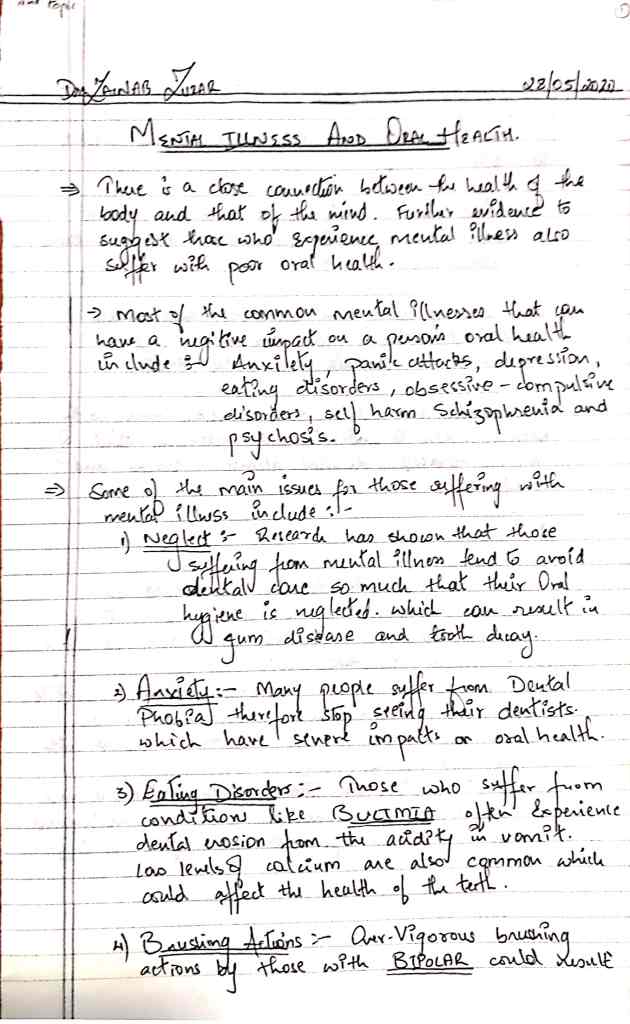 topic
1
Dr. ZAINAB ZUZAR 22/05/2020
MENTAL ILLNESS AND ORAL HEALTH.
⇒ There is a close connection between the health of the
body and that of the mind. Further evidence to
suggest that who experience mental illness also
suffer with poor oral health.
→ Most of the common mental illnesses that can
have a negitive impact on a person's oral health
include :- Anxilety, panic attacks, depression,
eating disorders, obsessive - compulsive
disorders, self harm Schizophrenia and
psychosis.
⇒ Some of the main issues for those suffering with
mental illness include :-
1) Neglect :- Research has shown that those
suffering from mental illness tend to avoid
dental care so much that their Oral
hygiene is neglected. which can result in
gum disease and tooth decay.
2) Anxiety :- Many people suffer from Dental
Phobia therefore stop seeing their dentists.
which have severe impacts on oral health.
3) Eating Disorders :- Those who suffer from
condition like BULIMIA often Experience
dental erosion from the acidity in vomit.
Low levels of calcium are also common which
could affect the health of the teeth.
4) Brushing Actions :- Over-Vigorous brushing
actions by those with BIPOLAR could result